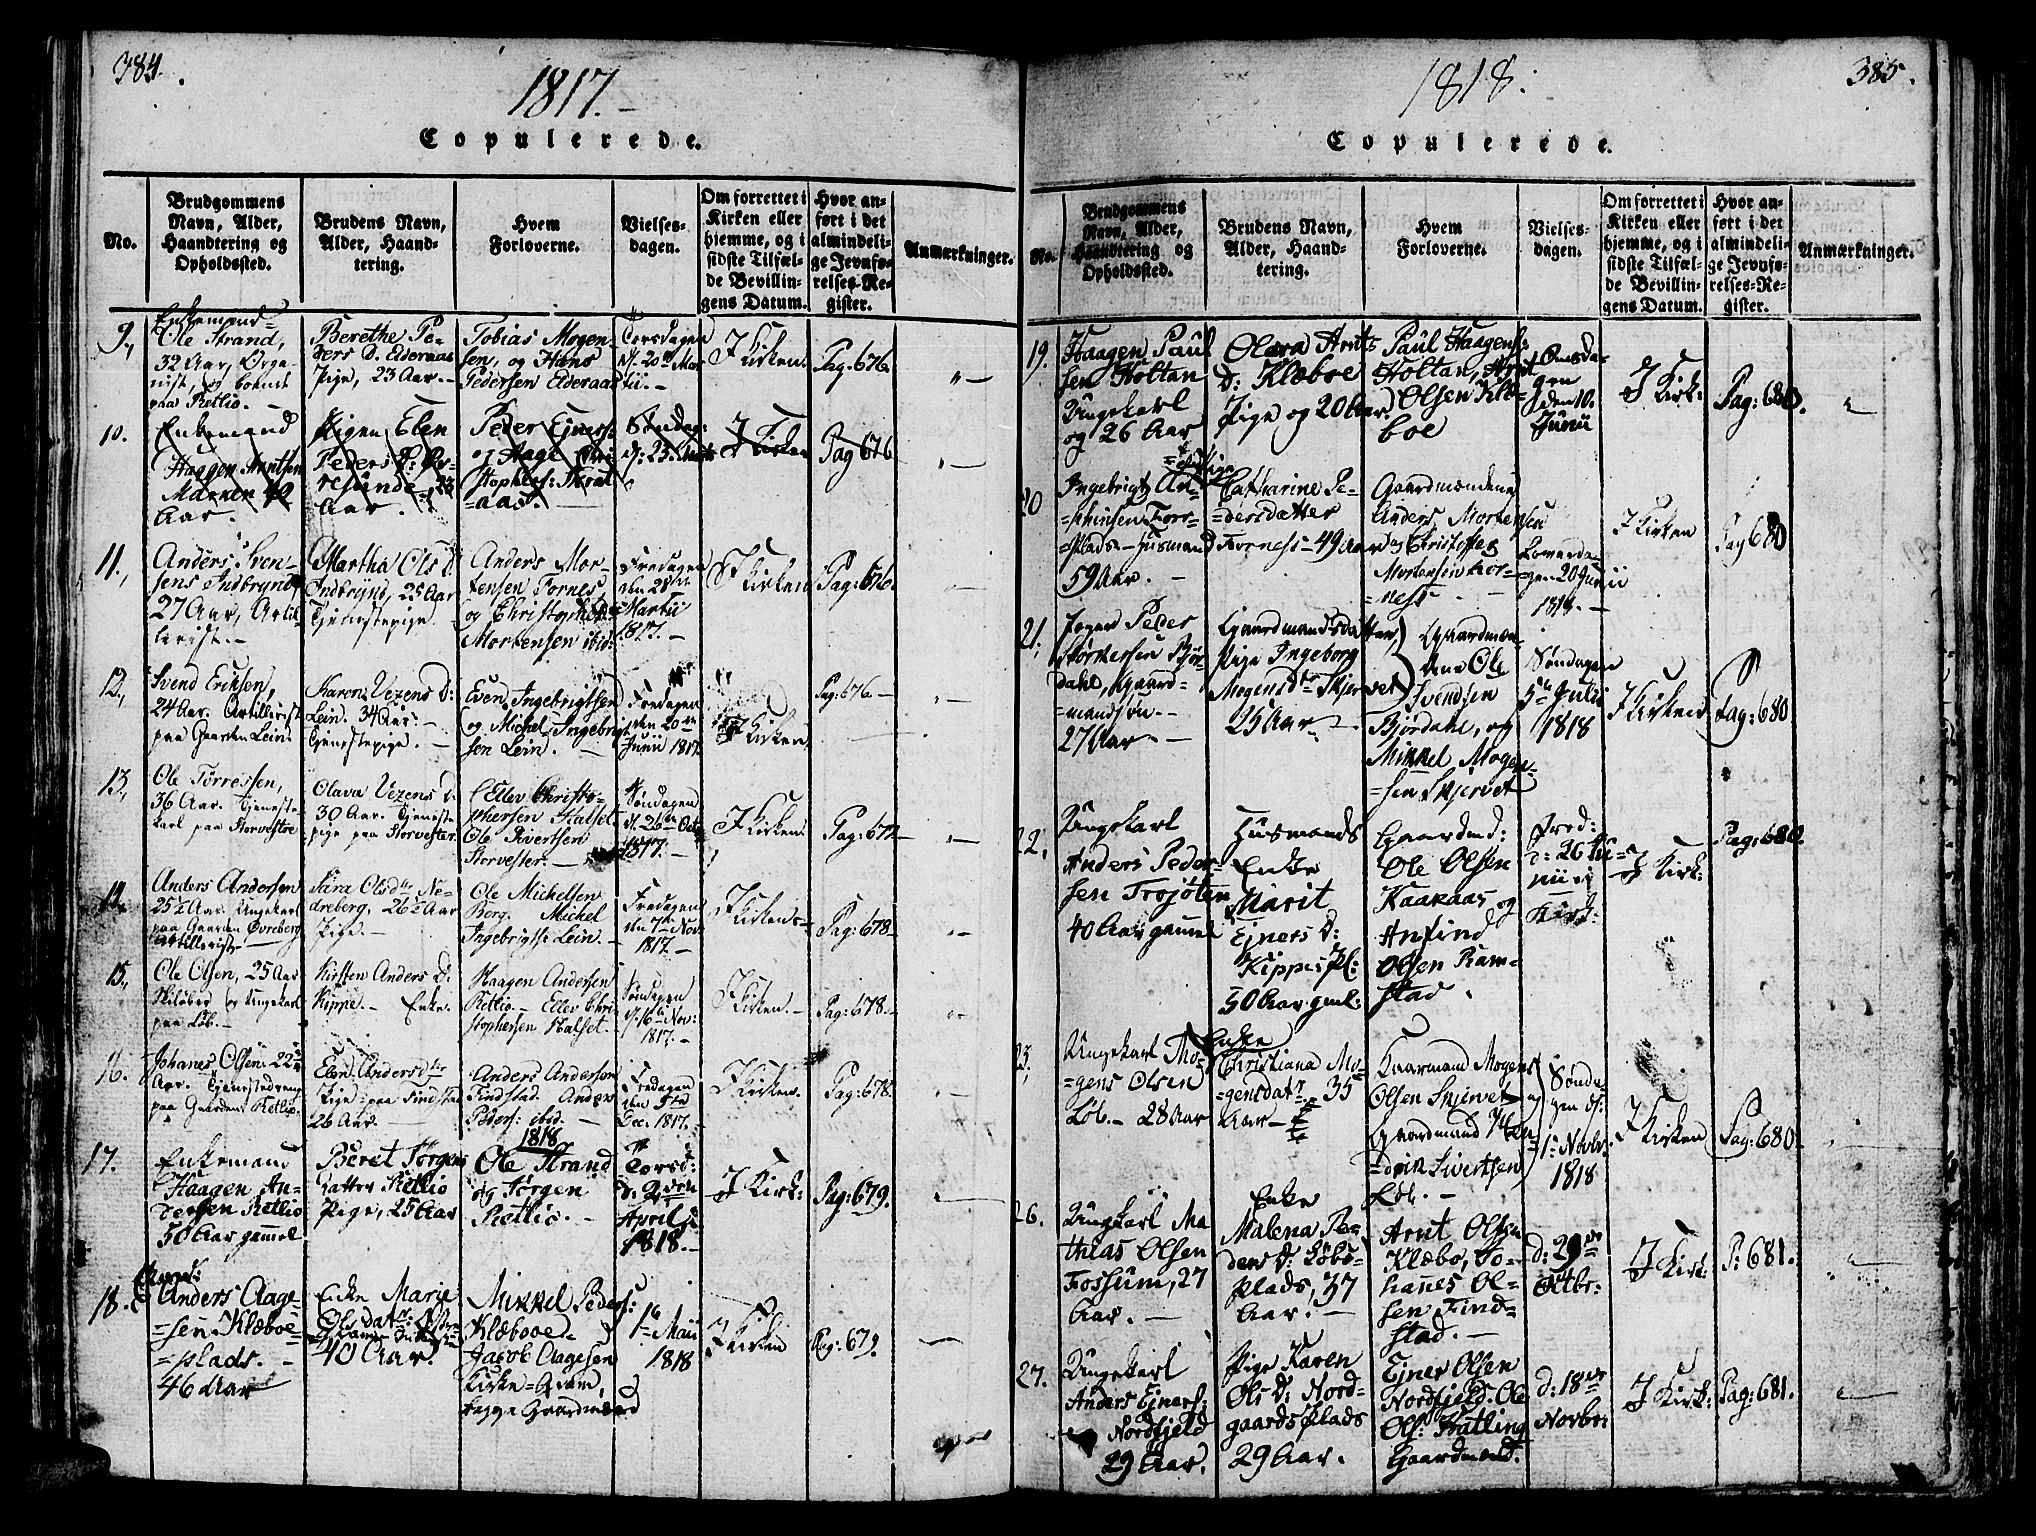 384.
1817.
Copulerede.
No.
Brudgommens
Navn, Alder,
Haandtering og
Opholdssted.
Brudens Navn,
Alder, Haand-
tering.
Hvem
Forloverne.
Vielses-
dagen.
Om forrettet i
Kirken eller
hjemme, og i
sidste Tilfæl-
de Bevillin-
gens Datum.
Hvor an-
ført i det
almindeli-
ge Jevnfø-
relses-Re-
gister.
Anmærkninger.
9.,
Enkemand
Ole Strand,
32 Aar, Orga-
nist, og boende
paa Retlio.
Berethe Pe-
ders D. Elderaas
Pige, 23 Aar.
Tobias Mogen-
sen, og Hans
Pedersen Elderaas
Torsdagen
d. 20de Mar-
tii.
I Kirken.
Pag: 676.
10.
Enkemand
Haagen Arntsen
Marken 42
Aar.
Pigen Elen
Peders D:
23
Aar.
Peder Ejners:
og Aage Chri
stophers:
aas.
Søndag:
d: 23. Marts
I Kirken
Pag 676
11.,
Anders Sven-
sens Indbryn
27 Aar, Artil-
lerist.
Martha Ols D.
Indbrynd, 25 Aar
Tjenestepige.
Anders Mor-
tensen Fornes,
og Christopher
Mortensen ibid:
Fredagen
den 28de
Martii
1817.
I Kirken
Pag: 676.
12.,
Svend Eriksen,
24 Aar. Artillerist
paa Gaarden Lein.
Karen Vezens D:
Lein. 34 Aar.
Tjenestepige.
Even Ingebrigtsen
og Michel Ingebrigt
sen Lein.
Fredagen
den 20de
Junii 1817.
I Kirken
Pag: 676.
13.,
Ole Torressen,
36 Aar. Tjeneste-
karl paa Storvestre
Olava Vezens D.
30 Aar. Tjeneste-
pige paa Storvester.
Ellev Christo-
phersen Halset
Ole Sivertsen
Storvester.
Søndagen
d. 26de Octb
1817.
I Kirken
Pag: 677.
14.
Anders Andersen
25 Aar. Ungekarl
paa Gaarden Øvreberg
Artillerist
Sara Olsdtr Ne-
dreberg, 26 Aar
Pige.
Ole Michelsen
Berg. Michel
Ingebrigts: Lein.
Fredagen
den 7de Nov.
1817.
I Kirken
Pag: 678.
15.,
Ole Olsen, 25 Aar
Skiløber og Ungekarl
paa Løb.
Kirsten Anders D:
Kippe. Enke.
Haagen Andersen
Retlio. Ellev Chri
stophersen Halset.
Søndagen
d. 16de Nov:
1817.
I Kirken.
Pag: 678.
16.
Johanes Olsen 22
Aar. Tjenestedreng
paa Gaarden Retlio.
Elen Andersdtr
Pige paa Findstad
26 Aar.
Anders Andersen
Findstad. Anders
Peders: ibid.
Fredagen
den 5te
Dec: 1817.
I Kirken.
Pag: 678.
1818
17.
Enkemand
Haagen An-
dersen Retlio
50 Aar gammel
Beret Jørgens
datter Retlio
Pige, 25 Aar
Ole Strand
og Jørgen
Retlio.
Torsd:
d: 2den
April
1818.
I Kirk:
Pag: 679.
18.
Anders Aage-
=sen Klæboe-
=plads.
46 Aar
Enke Marie
Olsdatr:
40 Aar.
Mikkel Peders:
Klæboe.
Jacob Aagesen
Kirke=
begge Gaardmænd
1te Maii
1818
I Kirken
Pag: 679.
385.
1818.
Copulerede.
No.
Brudgommens
Navn, Alder,
Haandtering og
Opholdssted.
Brudens Navn,
Alder, Haand-
tering.
Hvem
Forloverne.
Vielses-
dagen.
Om forrettet i
Kirken eller
hjemme, og i
sidste Tilfæl-
de Bevillin-
gens Datum.
Hvor an-
ført i det
almindeli-
ge Jevnfø-
relses-Re-
gister.
Anmærkninger.
19.
Haagen Paul
sen Holtan
Ungekarl
og 26 Aar
Olava Arnts
D: Klæboe
Pige og 20 Aar.
Paul Haagens:
Holtan, Arnt
Olsen Klæ-
boe
Onsda-
gen
den 10.
Junii
I Kirk:
Pag: 680.
20
Ingebrigt An-
=phinsen Fors-
=plads - Husmand
59 Aar.
Pige
Catharine Pe-
=dersdatter
Forness - 49 Aar
Gaardmændene
Anders Mortensen
og Christoffer
Mortensen For-
=ness
Løverda-
=gen 20 Junii
1818.
I Kirken
Pag 680
21,
Peder
Størkersen Bjør-
dahl, Gaard-
=mandsøn
27 Aar
Gaardmandsdatter,
Pige Ingeborg
Mogensdtr Skjervet
25 Aar
Gaardmæn-
dene Ole
Svendsen
Bjørdahl, og
Mikkel Mogen-
=sen Skjervet
Søndagen
5te Julii
1818
I Kirken
Pag: 680
22.
Ungekarl
Anders Peder-
sen Trøjøten
40 Aar gammel
Husmands
Enke
Marit
Ejners D:
Kippes Pl:
50 Aar gml:
Gaardmd:
Ole Olsen
Kaaraas og
Anfind
Olsen Ram-
stad.
Fred:
d: 26 Ju-
nii i
Kirk:
I Kirk:
Pag: 680.
Ungekarl Mo-
=gens Olsen
Løb. - 28 Aar
Enke
Christiana Mo-
=gensdatr. 35
Aar
Gaarmand Mogens
Olsen Skjervet og
Gaardmand Hen-
=drik Sivertsen
Løb.
Sønda-
gen d:
1te Novbr.
1818
I Kirken
Pag: 680.
26.
Ungkarl Ma
thias Olsen
Fossum, 27
Aar.
Enke
Malena Pe-
ders D: Løbs-
plads, 37
Aar.
Arnt Olsen
Klæbo, Jo-
hanes Ol-
sen Find-
stad.
d: 29de
Octbr:
I Kirk:
P: 681.
27.
Ungekarl
Anders Ejners:
Nordfjeld
29 Aar.
Pige Karen
Ols D: Nord-
gaards Plads
29 Aar.
Ejner Olsen
Nordfjeld. Ole
Ols: Halling
Gaardmænd.
d: 18de
Novbr:
I Kirk:
Pag: 681.